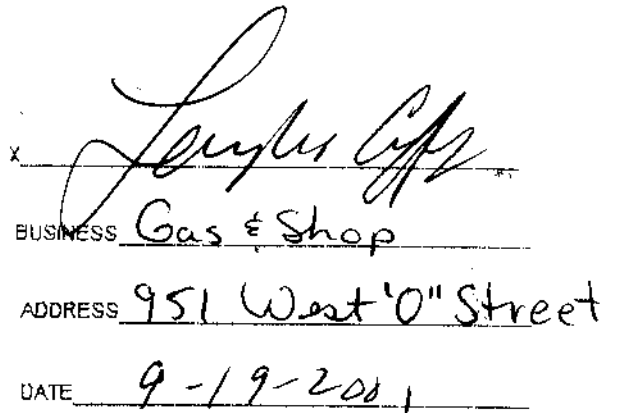 X
BUSINESS Gas & Shop
ADDRESS 951 West "O" Street
DATE 9-19-2001